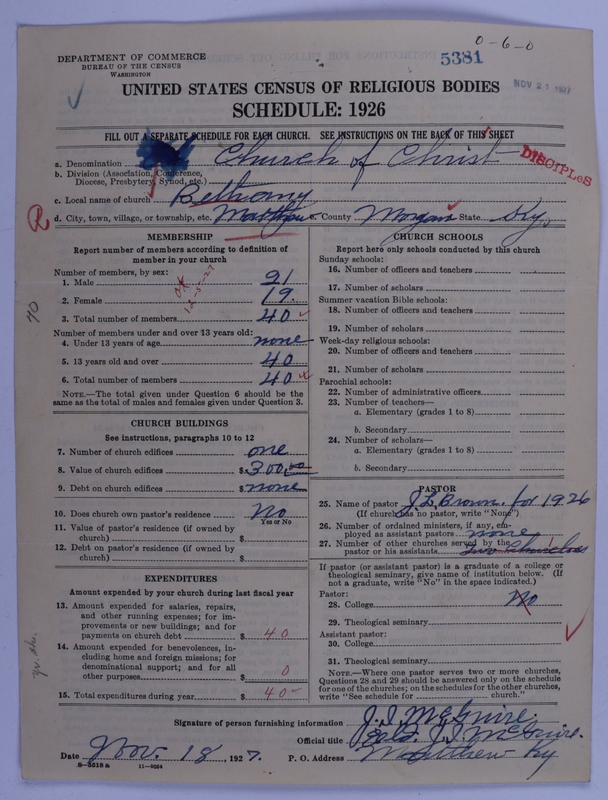 0-6-0
DEPARTMENT OF COMMERCE
BUREAU OF THE CENSUS
WASHINGTON
5381
NOV 21 1927
UNITED STATES CENSUS OF RELIGIOUS BODIES
SCHEDULE: 1926
FILL OUT A SEPARATE SCHEDULE FOR EACH CHURCH. SEE INSTRUCTIONS ON THE BACK OF THIS SHEET
a. Denomination Church of Christ
DISCIPLES
b. Division (Association, Conference,
Diocese, Presbytery, Synod, etc.)
c. Local name of church Bethany
R d. City, town, village, or township, etc. Matthew County Morgan State Ky.
MEMBERSHIP
Report number of members according to definition of
member in your church
Number of members, by sex:
1. Male 21
2. Female 19.
3. Total number of members 40
Number of members under and over 13 years old:
4. Under 13 years of age none
5. 13 years old and over 40
6. Total number of members 40
NOTE.—The total given under Question 6 should be
same as the total of males and females given under Question 3.
CHURCH BUILDINGS
See instructions, paragraphs 10 to 12
7. Number of church edifices one
8. Value of church edifices $300.00
9. Debt on church edifices $none
10. Does church own pastor's residence No
Yes or No
11. Value of pastor's residence (if owned by
church) $
12. Debt on pastor's residence (if owned by
church) $
EXPENDITURES
Amount expended by your church during last fiscal year
13. Amount expended for salaries, repairs,
and other running expenses; for im-
provements or new buildings; and for
payments on church debt $ 40
14. Amount expended for benevolences, in-
cluding home and foreign missions; for
denominational support; and for all
other purposes $ 0
15. Total expenditures during year $ 40-
CHURCH SCHOOLS
Report here only schools conducted by this church
Sunday schools:
16. Number of officers and teachers
17. Number of scholars
Summer vacation Bible schools:
18. Number of officers and teachers
19. Number of scholars
Week-day religious schools:
20. Number of officers and teachers
21. Number of scholars
Parochial schools:
22. Number of administrative officers
23. Number of teachers—
a. Elementary (grades 1 to 8)
b. Secondary
24. Number of scholars—
a. Elementary (grades 1 to 8)
b. Secondary
PASTOR
25. Name of pastor J. L. Brown. for 1926
(If church has no pastor, write "None")
26. Number of ordained ministers, if any, em-
ployed as assistant pastors none
27. Number of other churches served by the
pastor or his assistants two churches
If pastor (or assistant pastor) is a graduate of a college or
theological seminary, give name of institution below. (If
not a graduate, write "No" in the space indicated.)
Pastor:
28. College No
29. Theological seminary
Assistant pastor:
30. College
31. Theological seminary
NOTE.—Where one pastor serves two or more churches,
Questions 28 and 29 should be answered only on the schedule
for one of the churches; on the schedules for the other churches,
write "See schedule for church."
Signature of person furnishing information J. I. McGuire.
Official title Eld. J. I. McGuire.
Date Nov. 18, 1927. P. O. Address Matthew Ky
8-5518a 11-9034